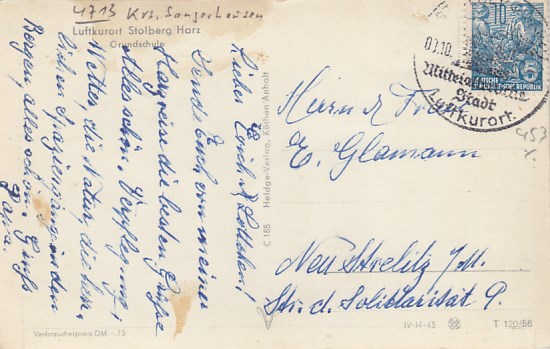 4713 Krs. Sangerhausen
Luftkurort Stolberg Harz
Grundschule
Liebe Erich u. Lottchen!
Sende Euch von meiner
Harzreise die besten Grüße
Alles schön, Verpflegung,
Wetter, die Natur, die herr-
lichen Spaziergänge in den
Bergen, alles schön. Gruß
Papa.
Verbraucherpreis DM -.15
C 185 Heldge-Verlag, Köthen/Anhalt
DEUTSCHE
REPUBLIK
5
09.10
Mittelalterliche
Stadt
Luftkurort.
453
x.
Herrn u. Frau
E. Glamann
Neu Strelitz i/M.
Str. d. Solidarität 9.
IV-14-45
T 120/56